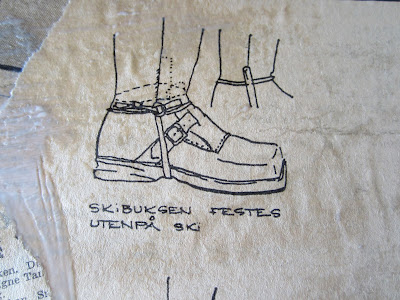 SKiBUKSEN FESTES
UTENPÅ SKi
ken. D
igne Tar